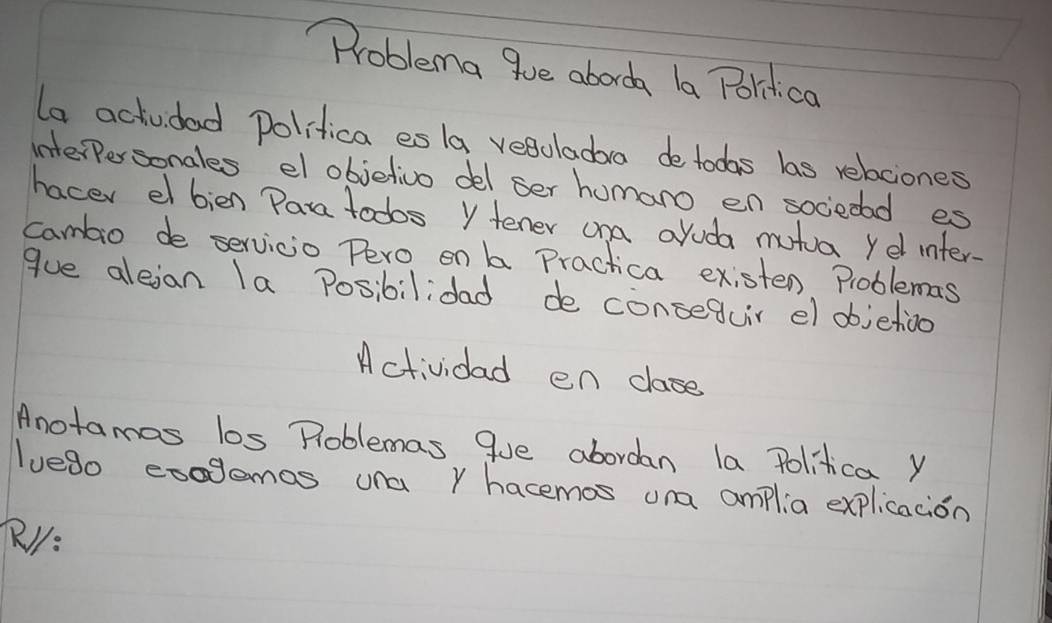 Problema que aborda la Política
la actividad Política es la reguladora de todas las relaciones
interPersonales el objetivo del ser humano en sociedad es
hacer el bien Para todos y tener una ayuda mutua y el inter-
cambio de servicio Pero en la Practica existen Problemas
que alejan la Posibilidad de conseguir el objetivo
Actividad en clase
Anotamos los Problemas que abordan la Política y
luego escogemos una y hacemos una amplia explicación
R//: